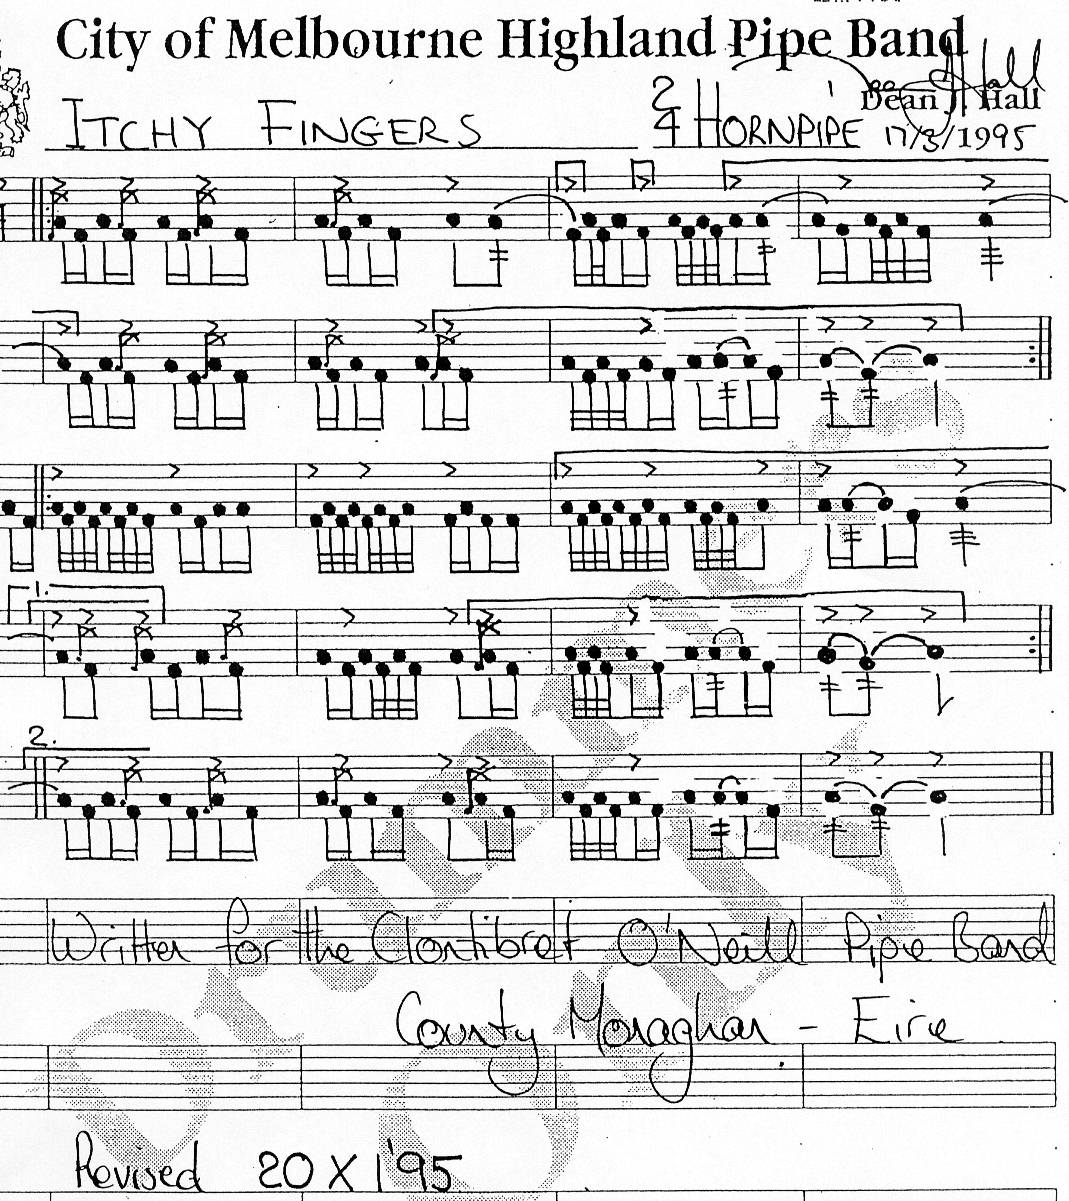 City of Melbourne Highland Pipe Band
Dean J. Hall
ITCHY FINGERS 2/4 HORNPIPE 17/3/1995
1.
2.
Written for the Clontibret O'Neill Pipe Band
County Monaghan - Eire
Revised 20 X 1'95